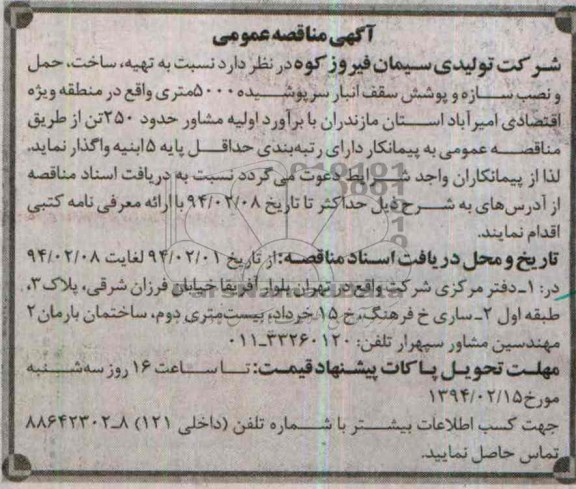 آگهی مناقصه عمومی
شرکت تولیدی سیمان فیروز کوه در نظر دارد نسبت به تهیه، ساخت، حمل
و نصب سازه و پوشش سقف انبار سرپوشیده ۵۰۰۰متری واقع در منطقه ویژه
اقتصادی امیرآباد استان مازندران با برآورد اولیه مشاور حدود ۲۵۰تن از طریق
مناقصه عمومی به پیمانکار دارای رتبه‌بندی حداقل پایه ۵ابنیه واگذار نماید.
لذا از پیمانکاران واجد شرایط دعوت می‌گردد نسبت به دریافت اسناد مناقصه
از آدرس‌های به شرح ذیل حداکثر تا تاریخ ۹۴/۰۲/۰۸ با ارائه معرفی نامه کتبی
اقدام نمایند.
تاریخ و محل دریافت اسناد مناقصه: از تاریخ ۹۴/۰۲/۰۱ لغایت ۹۴/۰۲/۰۸
در: ۱ـ دفتر مرکزی شرکت واقع در تهران بلوار آفریقا خیابان فرزان شرقی، پلاک۳،
طبقه اول ۲ـ ساری خ فرهنگ، خ ۱۵ خرداد، بیست‌متری دوم، ساختمان بارمان ۲
مهندسین مشاور سپهرار تلفن: ۳۳۲۶۰۱۲۰ـ۰۱۱
مهلت تحویل پاکات پیشنهاد قیمت: تا ساعت ۱۶ روز سه‌شنبه
مورخ ۱۳۹۴/۰۲/۱۵
جهت کسب اطلاعات بیشتر با شماره تلفن (داخلی ۱۲۱) ۸ـ۸۸۶۴۲۳۰۲
تماس حاصل نمایید.